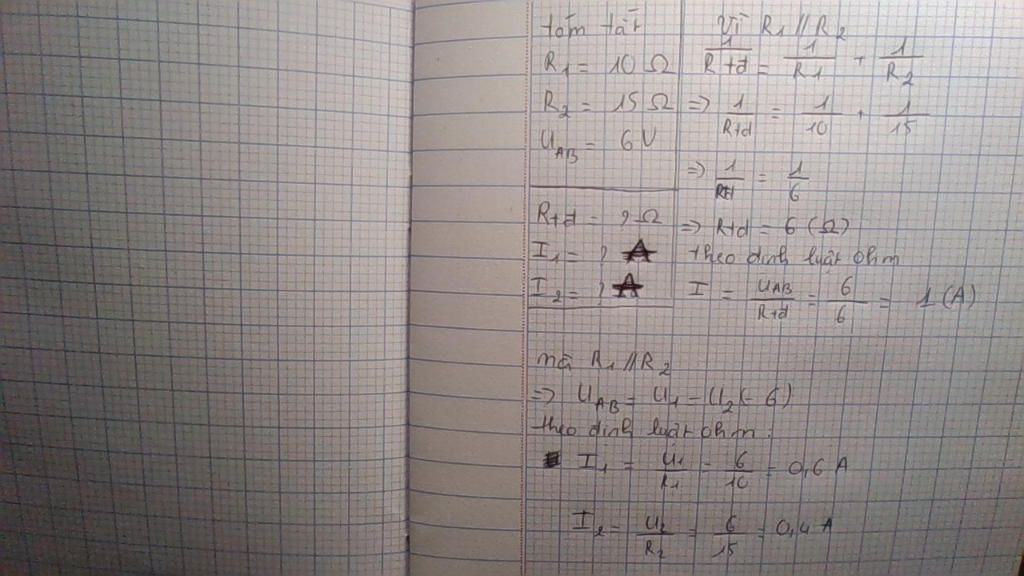 tóm tắt
R1 = 10 Ω
R2 = 15 Ω
UAB = 6 V
Rtd = ? Ω
I1 = ? A
I2 = ? A
Vì R1 // R2
1/Rtd = 1/R1 + 1/R2
=> 1/Rtd = 1/10 + 1/15
=> 1/Rtd = 1/6
=> Rtd = 6 (Ω)
theo định luật ohm
I = UAB/Rtd = 6/6 = 1 (A)
mà R1 // R2
=> UAB = U1 = U2 (= 6)
theo định luật ohm.
I1 = U1/R1 = 6/10 = 0,6 A
I2 = U2/R2 = 6/15 = 0,4 A